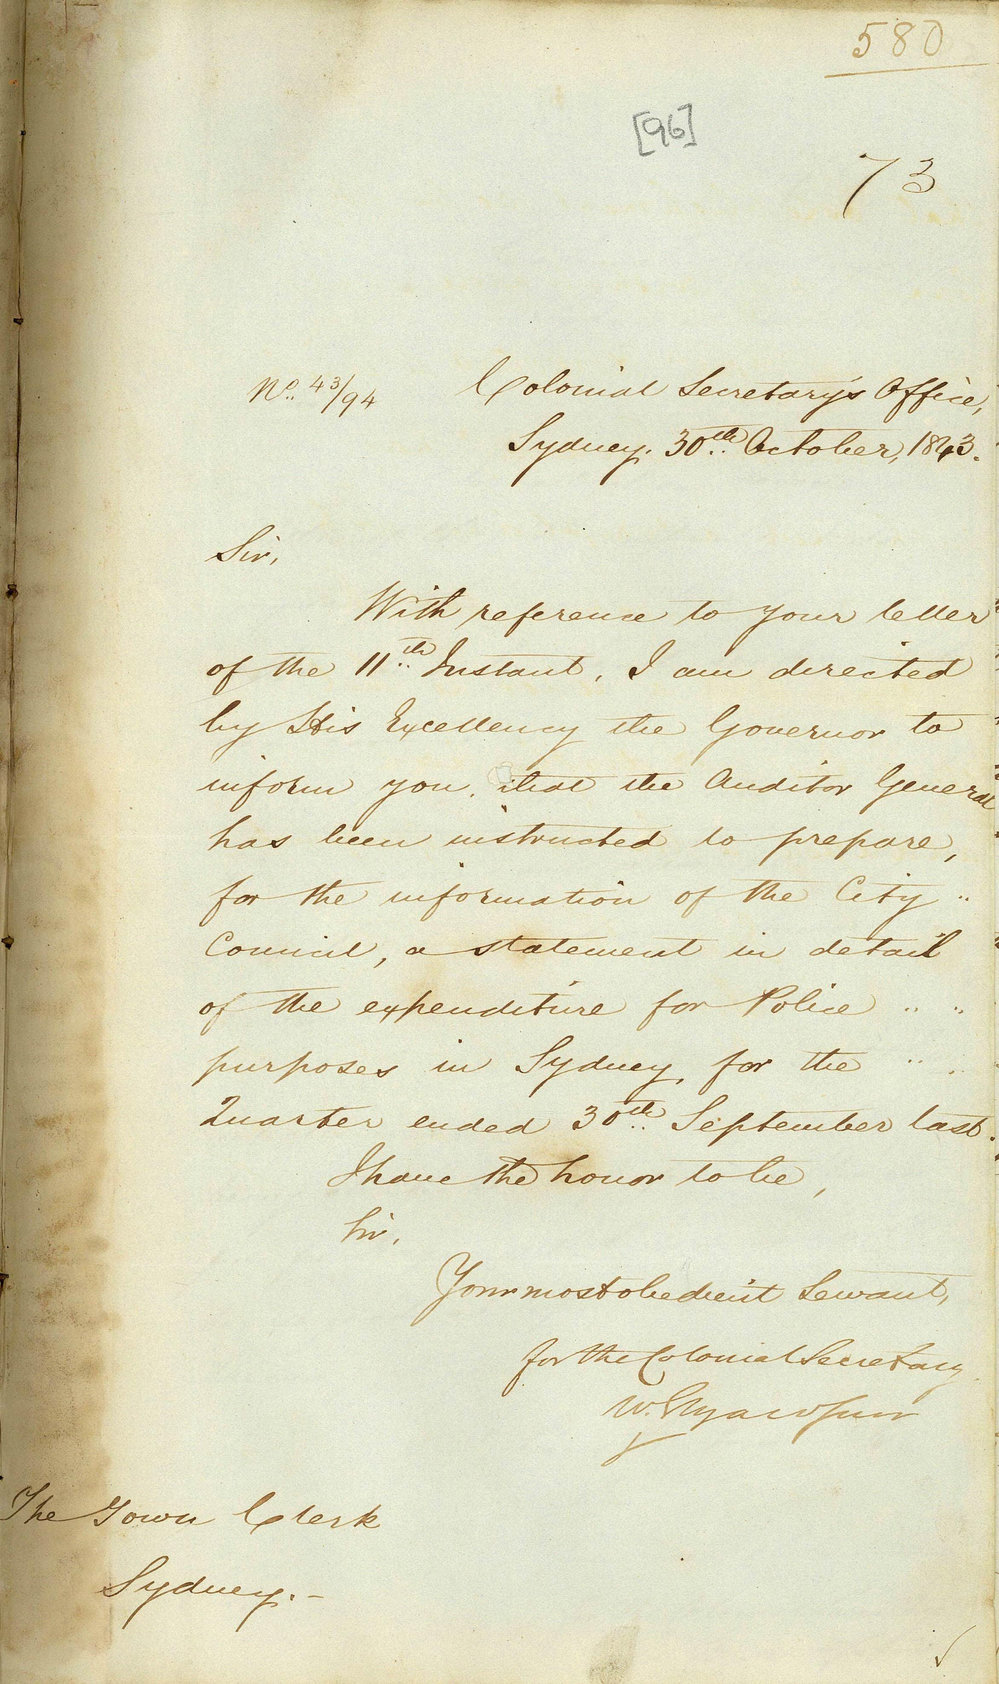 580
[96]
73
No. 43/94 Colonial Secretary's Office,
Sydney. 30th October, 1843.
Sir,
With reference to your letter
of the 11th Instant, I am directed
by His Excellency the Governor to
inform you, that the Auditor General
has been instructed to prepare,
for the information of the City
Council, a statement in detail
of the expenditure for Police
purposes in Sydney, for the
Quarter ended 30th September last.
I have the honor to be,
Sir,
Your most obedient Servant,
for the Colonial Secretary
W.
The Town Clerk
Sydney.-